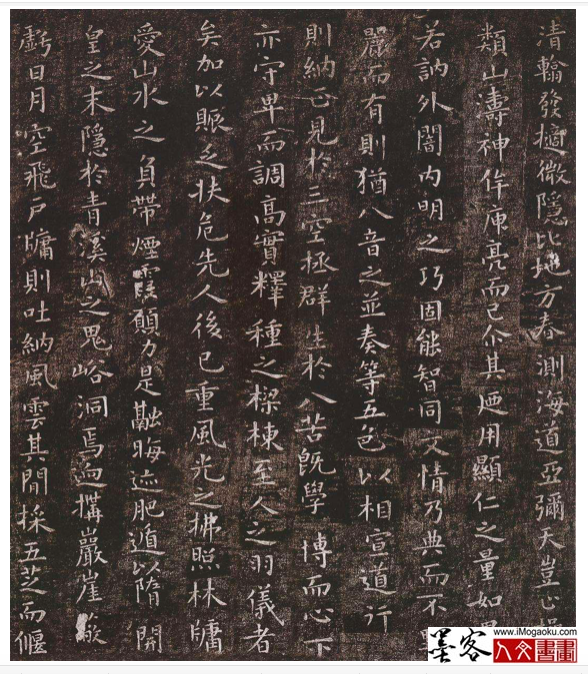 清翰發擿微隱比地方春測海道亞彌天豈止
類山濤神侔庾亮而已尒其廼用顯仁之量如
若訥外闇內明之巧固能智同文情乃典而不
嚴而有則猶八音之並奏等五色以相宣道行
則納正見於三空拯群生於八苦既學博而心下
亦守卑而調高實釋種之樑棟至人之羽儀者
矣加以賑乏扶危先人後已重風光之拂照林牖
愛山水之負帶煙霞願力是融晦迹肥遁以隋開
皇之末隱於青溪山之鬼峪洞焉迺構巖崖
虧日月空飛戶牖則吐納風雲其間採五芝而偃
墨客
www.iMogaoku.com
人文書畫